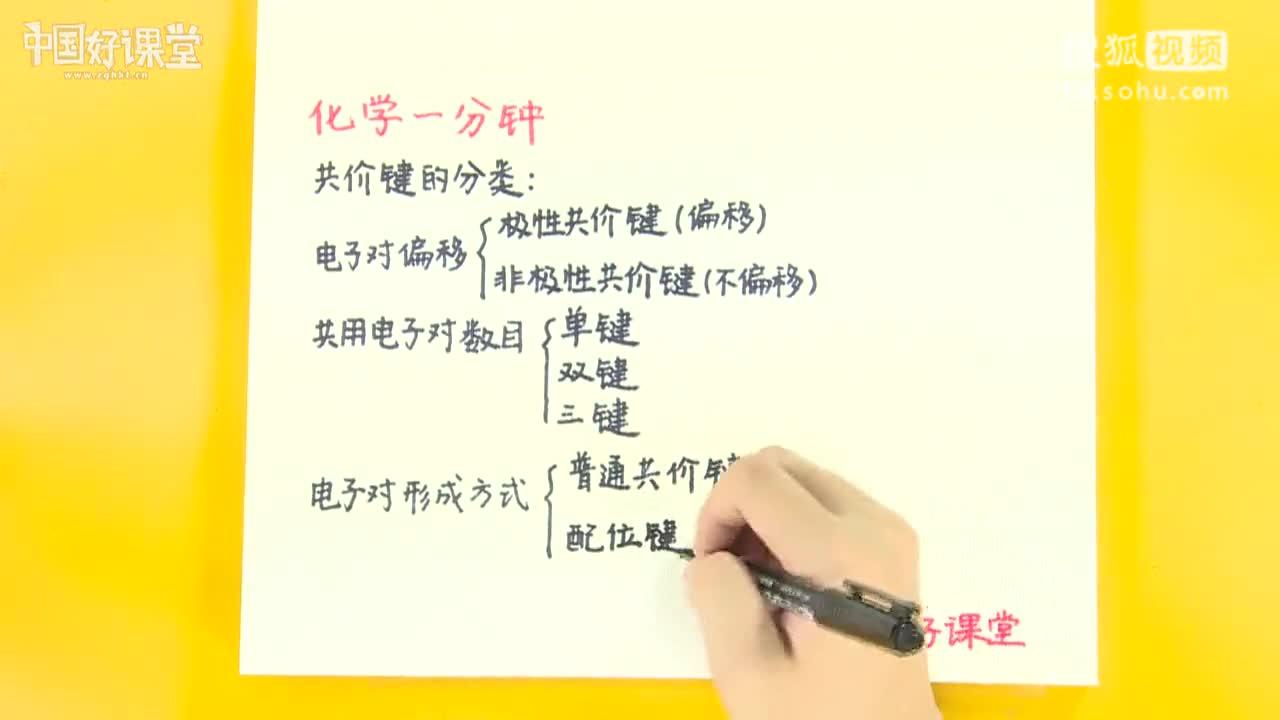 中国好课堂
www.zghkt.cn
狐视频
.sohu.com
化学一分钟
共价键的分类：
电子对偏移
极性共价键（偏移）
非极性共价键（不偏移）
共用电子对数目
单键
双键
三键
电子对形成方式
普通共价键
配位键
好课堂